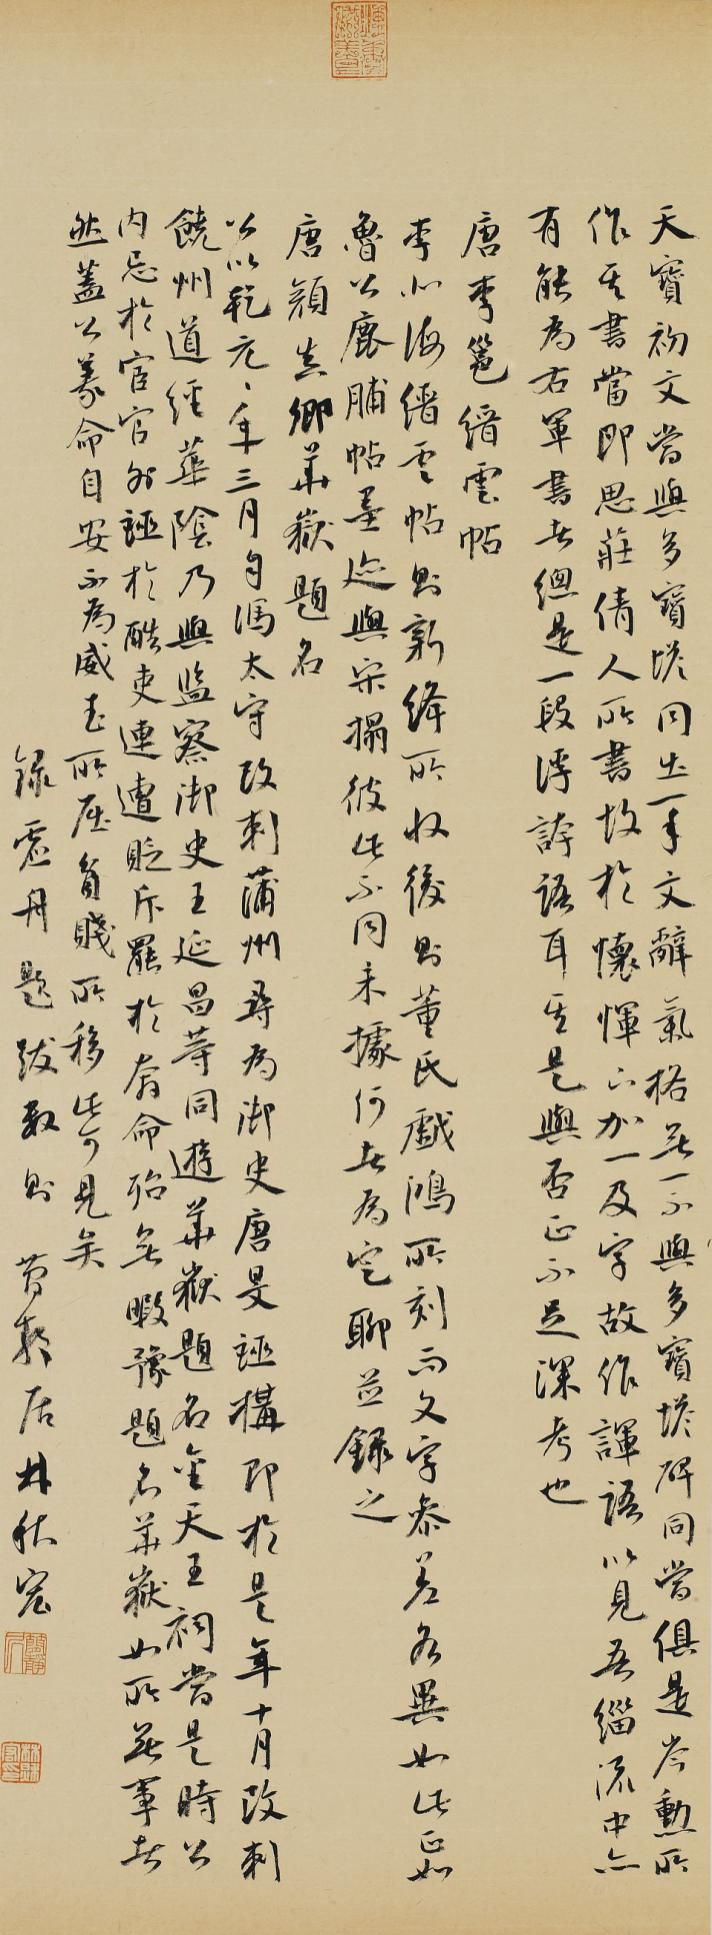 天寶初文當與多寶塔同出一手文辭氣格無一不與多寶塔碑同當俱是岑勳所
作其書當即思莊倩人所書故於懷惲下加一及字故作諢語以見吾緇流中亦
有能為右軍書者總是一段浮誇語耳其是與否正不足深考也
唐李邕縉雲帖
李北海縉雲帖則新絳所收後則董氏戲鴻所刻而文字參差各異如此正如
魯公鹿脯帖墨迹與宋搨彼此不同未據何者為定聊並錄之
唐顏真卿華嶽題名
公以乾元元年三月自馮太守改刺蒲州尋為御史唐旻誣構即於是年十月改刺
饒州道經華陰乃與監察御史王延昌等同遊華嶽題名金天王祠當是時公
內忌於宦官外誣於酷吏連遭貶斥罷於奔命殆無暇豫題名華嶽如所無事者
然蓋公義命自安不為威武所屈貧賤所移此可見矣
錄虛舟題跋數則 居林秋宏